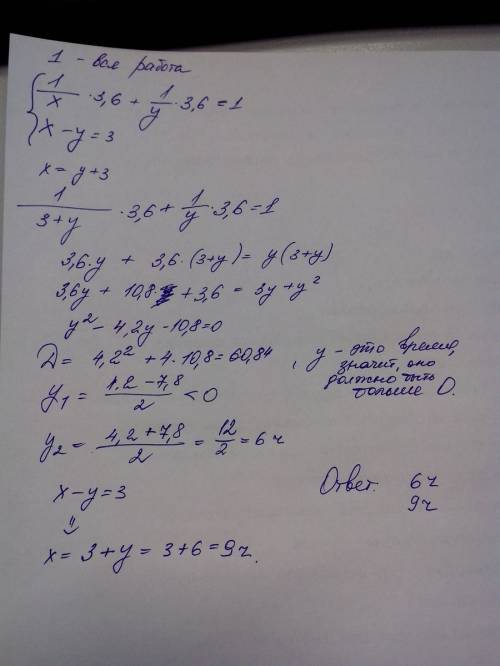 1 - вся работа
1/x · 3,6 + 1/y · 3,6 = 1
x - y = 3
x = y + 3
1/(3+y) · 3,6 + 1/y · 3,6 = 1
3,6·y + 3,6·(3+y) = y(3+y)
3,6y + 10,8 + 3,6 = 3y + y²
y² - 4,2y - 10,8 = 0
D = 4,2² + 4·10,8 = 60,84
y₁ = (4,2 - 7,8)/2 < 0
, y - это время,
значит, оно
должно быть
больше 0.
y₂ = (4,2 + 7,8)/2 = 12/2 = 6 ч
x - y = 3
x = 3 + y = 3 + 6 = 9ч.
Ответ. 6ч
9ч